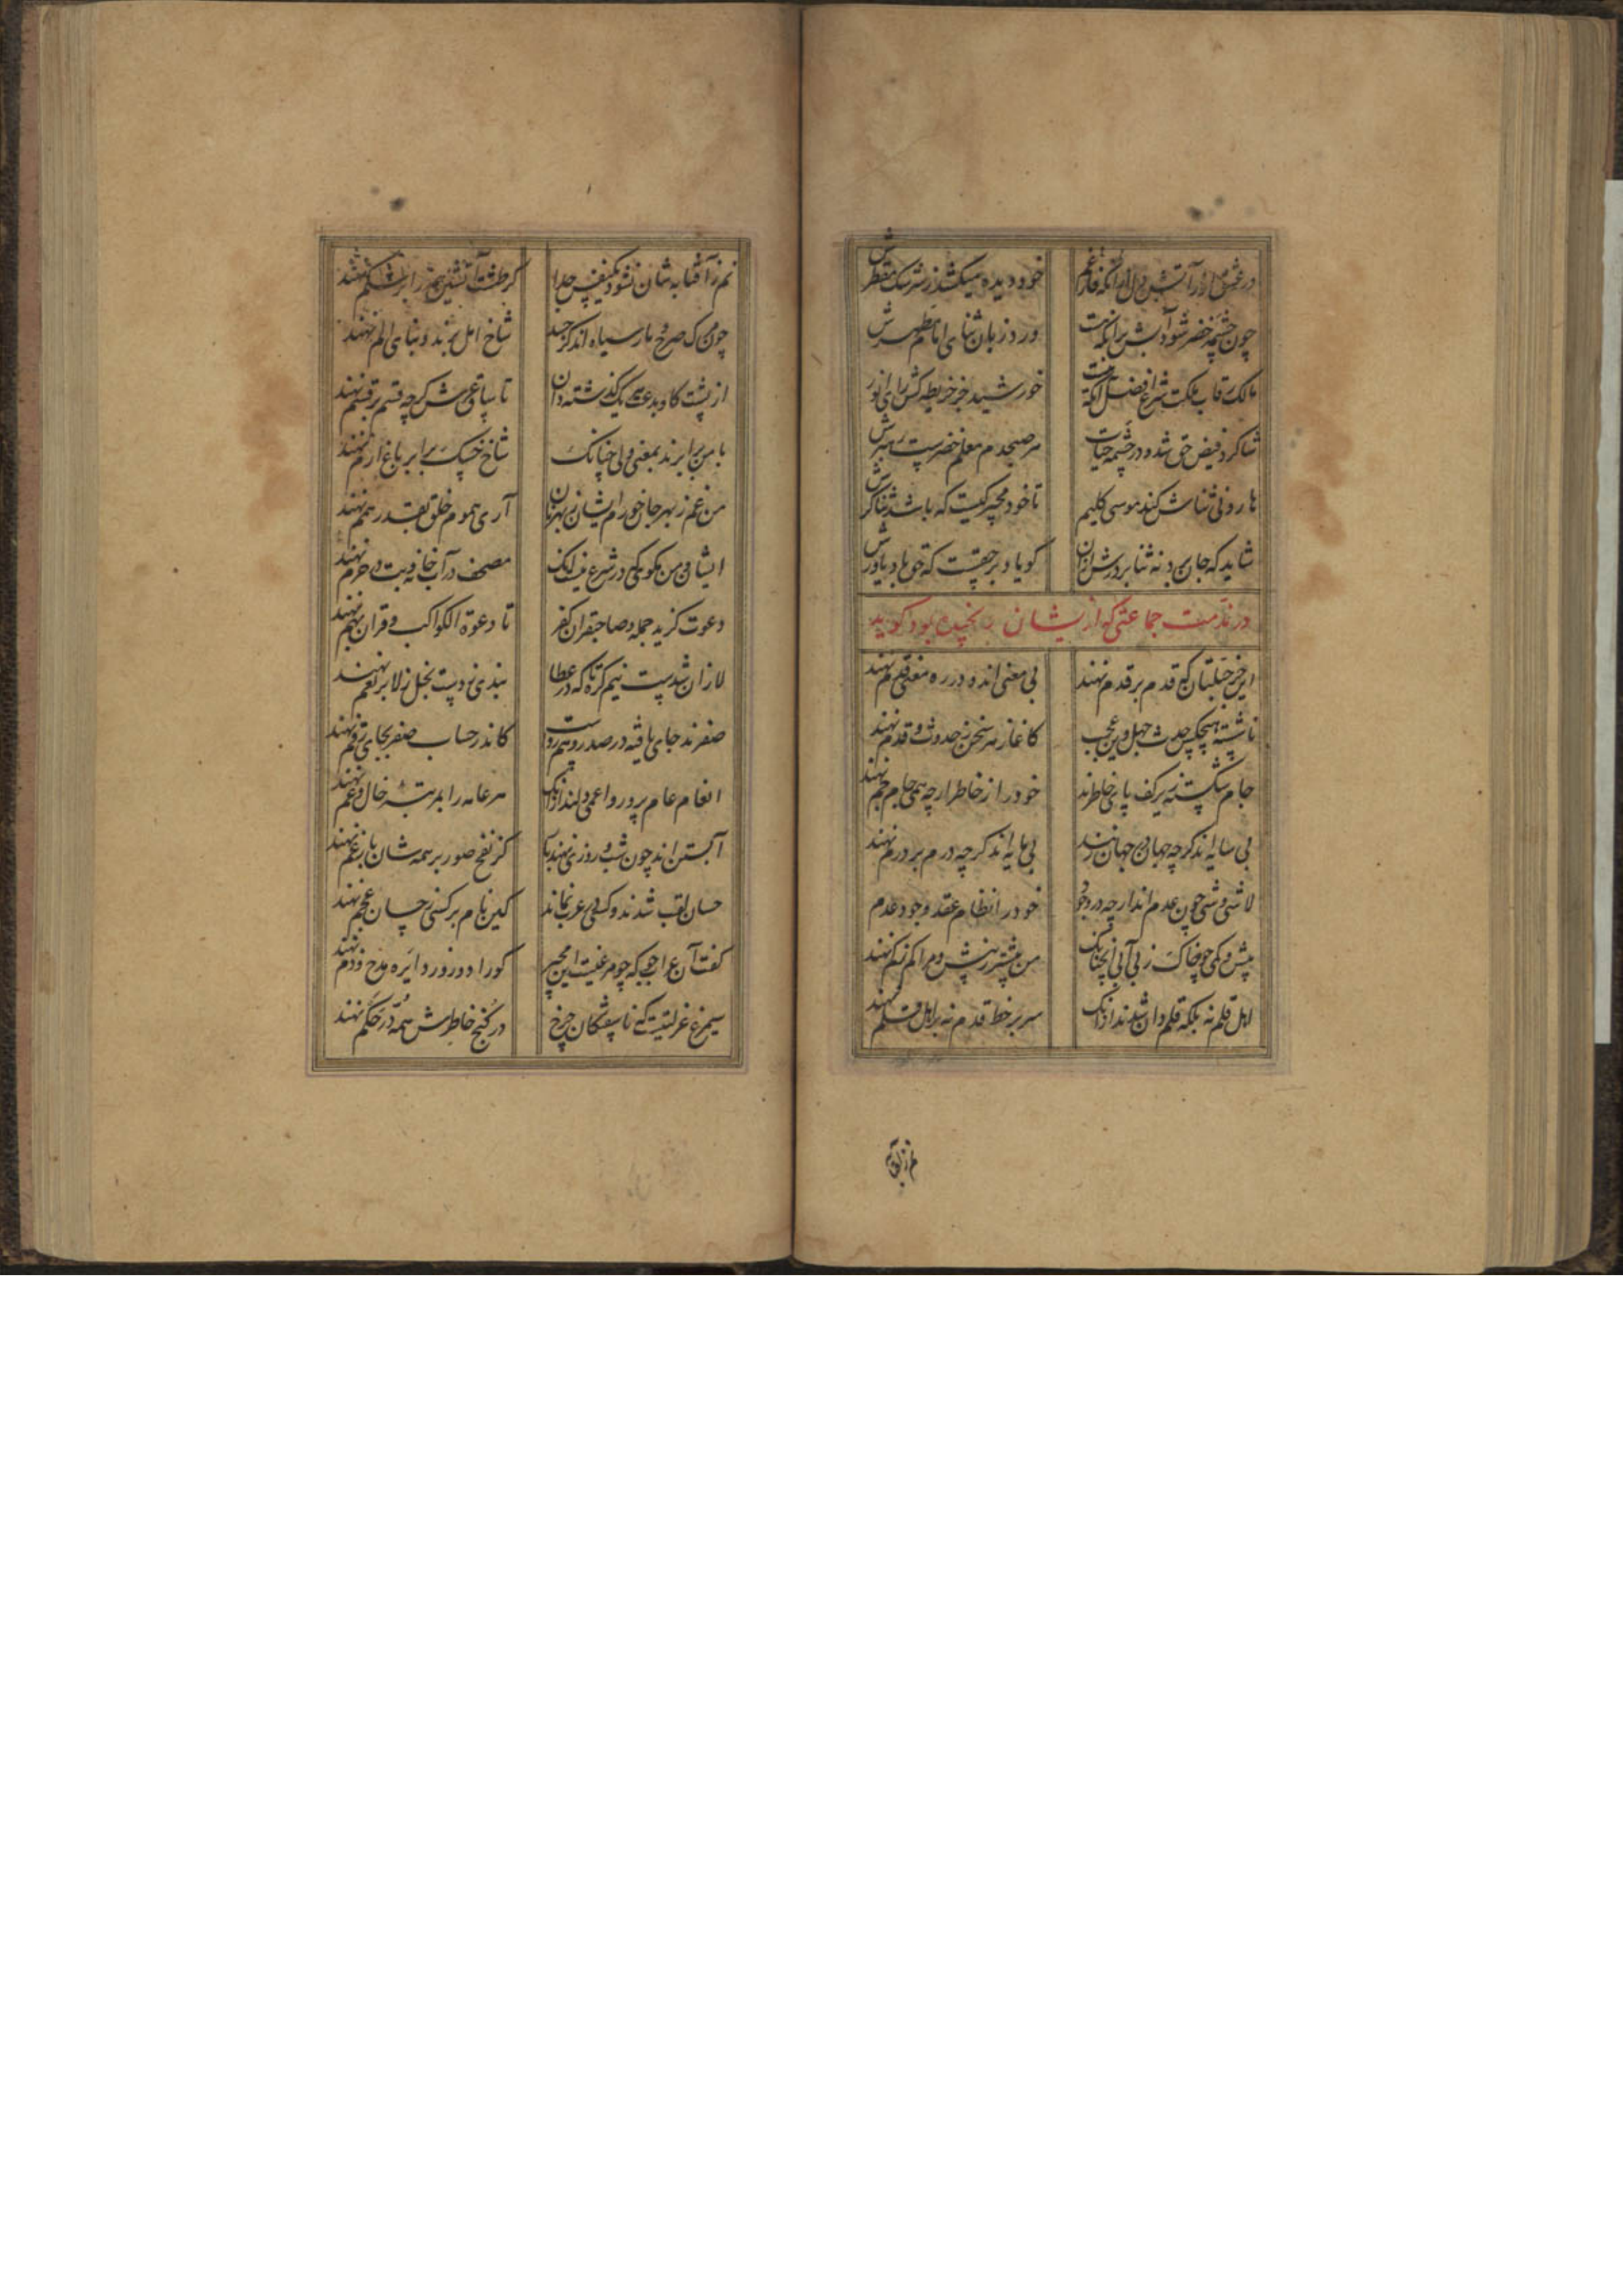 خود دیده میکند ز سرشک مقطرش
چون چشمه خضر شود آبش برانکه هست ورد زبان ثنای امام مطهرش
مالک رقاب ملکت شرع افضل آنکه هست خورشید جزو خریطه کش رای انورش
شاکرد فیض حق شده در چشمه حیات هر صبحدم معلم خضرست رهبرش
هارونی ثناش کند موسی کلیم تا خود مجیر کیست که باشد ثناکرش
شاید که جان دو نه ثنا بر درش از آن کویا و برحقیست که حق باد یاورش
در مذمت جماعتی کو از یشان رنجیده بود کوید
این خر جبلتان که قدم بر قدم نهند بی معنی اند و در ره معنی قلم نهند
ناشسته هیچکس حدث جهل وین عجب کاغاز هر سخن ز حدوث و قدم نهند
جام شکسته زیر کف پای خاطرند خود را ز خاطر ار چه همی جام جم نهند
بی سایه اند کرچه جهان در جهان زنند بی مایه اند کرچه درم بر درم نهند
لا شی و شی چون عدم اند ار چه در وجود خود را نظام عقد وجود و عدم
پیش و کمی چو خاک ز بی آبی آنچنانک من پیشتر ز پیش و مرا کم ز کم نهند
اهل قلم نه بلکه قلم دان شدند از آنک سر بر خط قدم نه بر اهل قلم نهند
نم ز آفتابه شان نشود یکنفس جدا کر طشت آتشین همه را بر شکم نهند
چون مرک صرح و مار سیاه اند کز حسد شاخ امل برند و بنای الم نهند
از پشت کاو بدعت یک یک گذشته دان تا ساق عرش کرچه قسم بر قسم نهند
با من برابرند بمعنی ولی چنانک شاخ خسک برابر باغ ارم نهند
من غم ز بهر جان خورم ایشان ز بهر نان آری هموم خلق بقدر همم نهند
ایشان و من مکو یکی در شرع نیست آنک مصحف در آب خانه و بت در حرم نهند
دعوت کزید جمله و صاحبقران کفر تا دعوة الکواکب و قران بهم نهند
لا زان شدست نیم کره تا که در عطا بندی ز دست بخل ز لا بر نعم نهند
صفرند جای یافته در صدر و هم رواست کاندر حساب صفر بجای رقم نهند
انعام عام پرور و اعمی دلند از آنک هر عامه را بمرتبه خال و عم نهند
آبستن اند چون شب و روزی نهند بار کز نفخ صور بر همه شان بار غم نهند
حسان لقب شدند و کسی در عرب نماند کین نام بر کسی ز خسان عجم نهند
کفت آن عراجی که چو مرغیست این مجیر کورا دو زور و دایره مدح و ذم نهند
سیمرغ عزلتیست که ناسفتکان چرخ در کنج خاطرش همه در حکم نهند